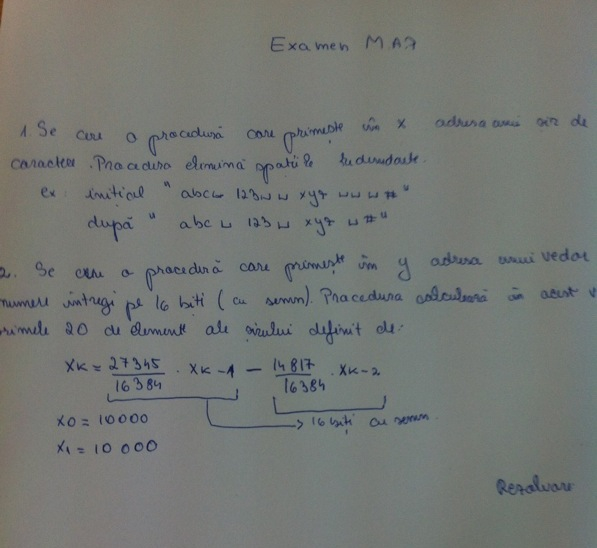 Examen M.A7
1. Se cere o procedură care primește în X adresa unui șir de
caractere. Procedura elimină spațiile redundante.
ex. inițial " abc␣ 123␣␣ xyz ␣␣␣#"
după " abc ␣ 123 ␣ xyz ␣#"
2. Se cere o procedură care primește în y adresa unui vector
numere întregi pe 16 biți (cu semn). Procedura calculează în acest v
primele 20 de elemente ale șirului definit de:
XK = 27345/16384 · XK-1 – 14817/16384 · XK-2
X0 = 10000 → 16 biți cu semn.
X1 = 10 000
Rezolvare